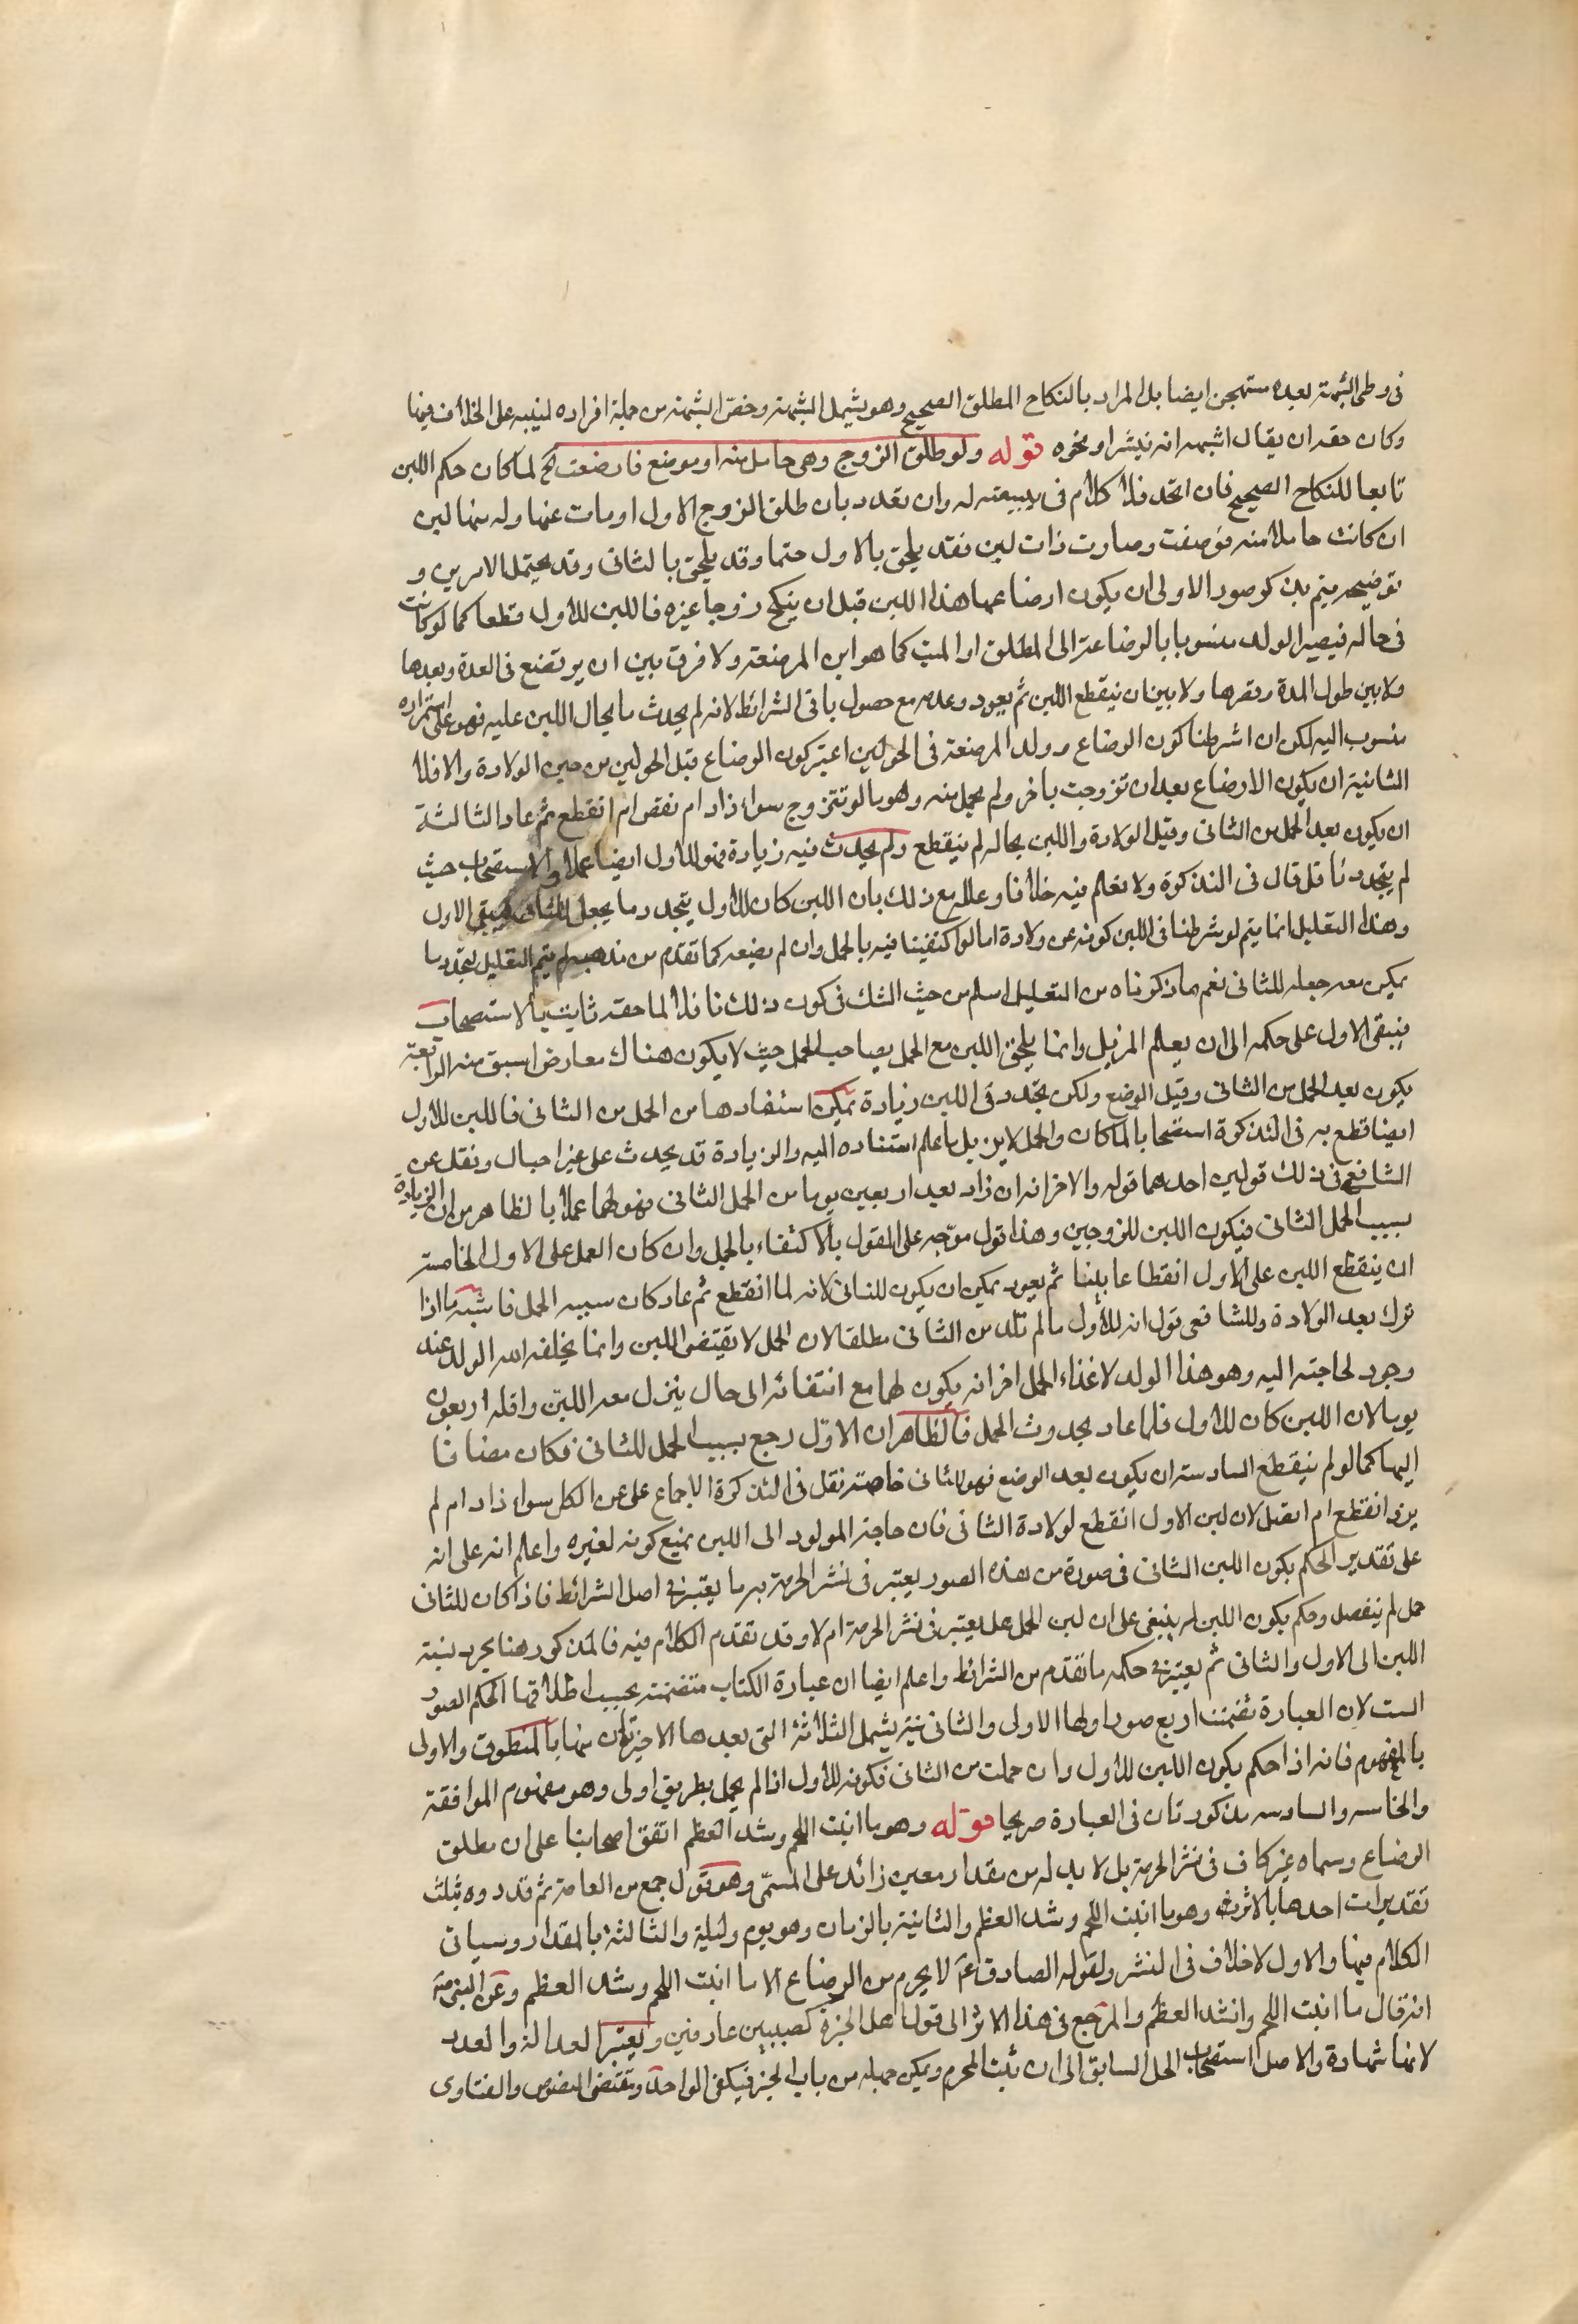 فى وطى الشبهة بعده مستهجن ايضا بل المراد بالنكاح المطلق الصحيح وهو يشمل الشبهة وخص الشبهة من جملة افراده لينبه على الخلاف فيها
وكان حقه ان يقال اشبهه انه ينشر او نحوه قوله ولو طلق الزوج وهى حامل منه او مرضع فارضعت الخ لما كان حكم اللبن
تابعا للنكاح الصحيح فان اتحد فلا كلام فى تبعيته له وان تعدد بان طلق الزوج الاول او مات عنها وله منها لبن
ان كانت حاملا منه فوضعت وصارت ذات لبن فقد يلحق بالاول حتما وقد يلحق بالثانى وقد يحتمل الامرين و
توضيحه يتم بذكر صور الاولى ان يكون ارضاعها هذا اللبن قبل ان ينكح زوجا غيره فاللبن للاول قطعا كما لو كانت
فى حاله فيصير الولد منسوبا بالرضاعة الى المطلق او الميت كما هو ابن المرضعة ولا فرق بين ان يرتضع فى العدة وبعدها
ولا بين طول المدة وقصرها ولا بين ان ينقطع اللبن ثم يعود وعدمه مع حصول باقى الشرائط لانه لم يحدث ما يحال اللبن عليه فهو على استمراره
منسوب اليه لكن ان اشرطنا كون الرضاع وولد المرضعة فى الحولين اعتبر كون الرضاع قبل الحولين من حين الولادة والا فلا
الثانية ان يكون الارضاع بعد ان تزوجت باخر ولم يحمل منه وهو ما لو تتزوج سواء زاد ام نقص ام انقطع ثم عاد الثالثة
ان يكون بعد الحمل من الثانى وقبل الولادة واللبن بحاله لم ينقطع ولم يحدث فيه زيادة فهو للاول ايضا عملا بالاستصحاب حيث
لم يتجدد ناقل قال فى التذكرة ولا نعلم فيه خلافا وعلله مع ذلك بان اللبن كان للاول يتجدد ما يجعل للثانى فيبقى الاول
وهذا التعليل انما يتم لو شرطنا فى اللبن كونه عن ولادة اما لو اكتفينا فيه بالحمل وان لم يضعه كما تقدم من مذهبه لم يتم التعليل لتجدد ما
يمكن معه جعله للثانى نعم ما ذكرناه من التعليل اسلم من حيث الشك فى كون ذلك ناقلا لما حقه ثابت بالاستصحاب
فيبقى الاول على حكمه الى ان يعلم المزيل وانما يلحق اللبن مع الحمل بصاحب الحمل حيث لا يكون هناك معارض اسبق منه الرابعة
يكون بعد الحمل من الثانى وقبل الوضع ولكن تجدد فى اللبن زيادة يمكن استنادها من الحمل من الثانى فاللبن للاول
ايضا قطع به فى التذكرة استصحابا لما كان والحمل لا يزيل ما علم استناده اليه والزيادة قد يحدث على غير احبال ونقل عن
الشافعى فى ذلك قولين احدهما قوله والاخر انه ان زاد بعد اربعين يوما من الحمل الثانى فهو لهما عملا بالظاهر من ان الزيادة
بسبب الحمل الثانى فيكون اللبن للزوجين وهذا قول موجه على القول بالاكتفاء بالحمل وان كان العمل على الاول الخامسة
ان ينقطع اللبن على الاول انقطاعا بينا ثم يعود يمكن ان يكون للثانى لانه لما انقطع ثم عاد كان سببه الحمل فاشبه ما اذا
نزل بعد الولادة وللشافعى قول انه للاول ما لم تلد من الثانى مطلقا لان الحمل لا يقتضى اللبن وانما يخلقه الله الولد عند
وجود لحاجته اليه وهو هذا الولد لا غذاء الحمل اخر انه يكون لهما مع انتفائه الى حال ينزل معه اللبن واقله اربعون
يوما لان اللبن كان للاول فلما عاد بحدوث الحمل فالظاهر ان الاول رجع بسبب الحمل للثانى فكان مضافا
اليهما كما لو لم ينقطع السادسة ان يكون بعد الوضع فهو للثانى خاصة نقل فى التذكرة الاجماع على عن الكل سواء زاد ام لم
يزد انقطع ام اتصل لان لبن الاول انقطع لولادة الثانى فان حاجة المولود الى اللبن يمنع كونه لغيره واعلم انه على انه
على تقدير الحكم بكون اللبن الثانى فى صورة من هذه الصور يعتبر فى نشر الحرمة به ما يعتبر فى اصل الشرائط فاذا كان للثانى
حمل لم ينفصل وحكم بكون اللبن له ينبغى على ان لبن الحمل هل يعتبر فى نشر الحرمة ام لا وقد تقدم الكلام فيه فالمذكور هنا يجرد نسبة
اللبن الى الاول والثانى ثم يعتبر فى حكمه ما تقدم من الشرائط واعلم ايضا ان عبارة الكتاب متضمنة بحسب اطلاقها الحكم الصور
الست لان العبارة تضمنت اربع صور اولها الاولى والثانى يشمل الثلاثة التى بعدها الاخيرتان منها بالمنطوق والاولى
بالمفهوم فانه اذا حكم بكون اللبن للاول وان حملت من الثانى فكونه للاول اذا لم يحمل بطريق اولى وهو مفهوم الموافقة
والخامسه والسادسه مذكورتان فى العبارة صريحا قوله وهو ما انبت اللحم وشد العظم اتفق اصحابنا على ان مطلق
الرضاع ومسماه غير كاف فى نشر الحرمة بل لا بد له من مقدار معين زائد على المسمى وهو قول جمع من العامة ثم قدروه بثلث
تقديرات احدها بالاثر وهو ما انبت اللحم وشد العظم والثانية بالزمان وهو يوم وليلة والثالثة بالمقدار وسياتى
الكلام فيها والاول لاخلاف فى النشر ولقوله الصادق ع لا يحرم من الرضاع الا ما انبت اللحم وشد العظم وعن النبى ص
انه قال ما انبت اللحم وانشد العظم والمرجع فى هذا الاثر الى قول اهل الخبرة كصبيين عارفين ويعتبر العدالة والعدد
لانها شهادة والاصل استصحاب الحل السابق الى ان يثبت المحرم ويمكن جعله من باب الخبر فيكفى الواحد وتقتضى النصوص والفتاوى